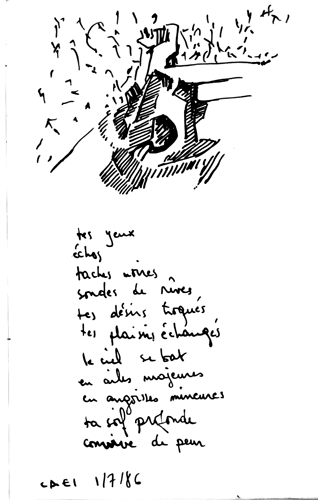 tes yeux
échos
taches noires
sondes de rêves
tes désirs troqués
tes plaisirs échangés
le ciel se bat
en ailes majeures
en angoisses mineures
ta soif profonde
de peur
CAEI 1/7/86